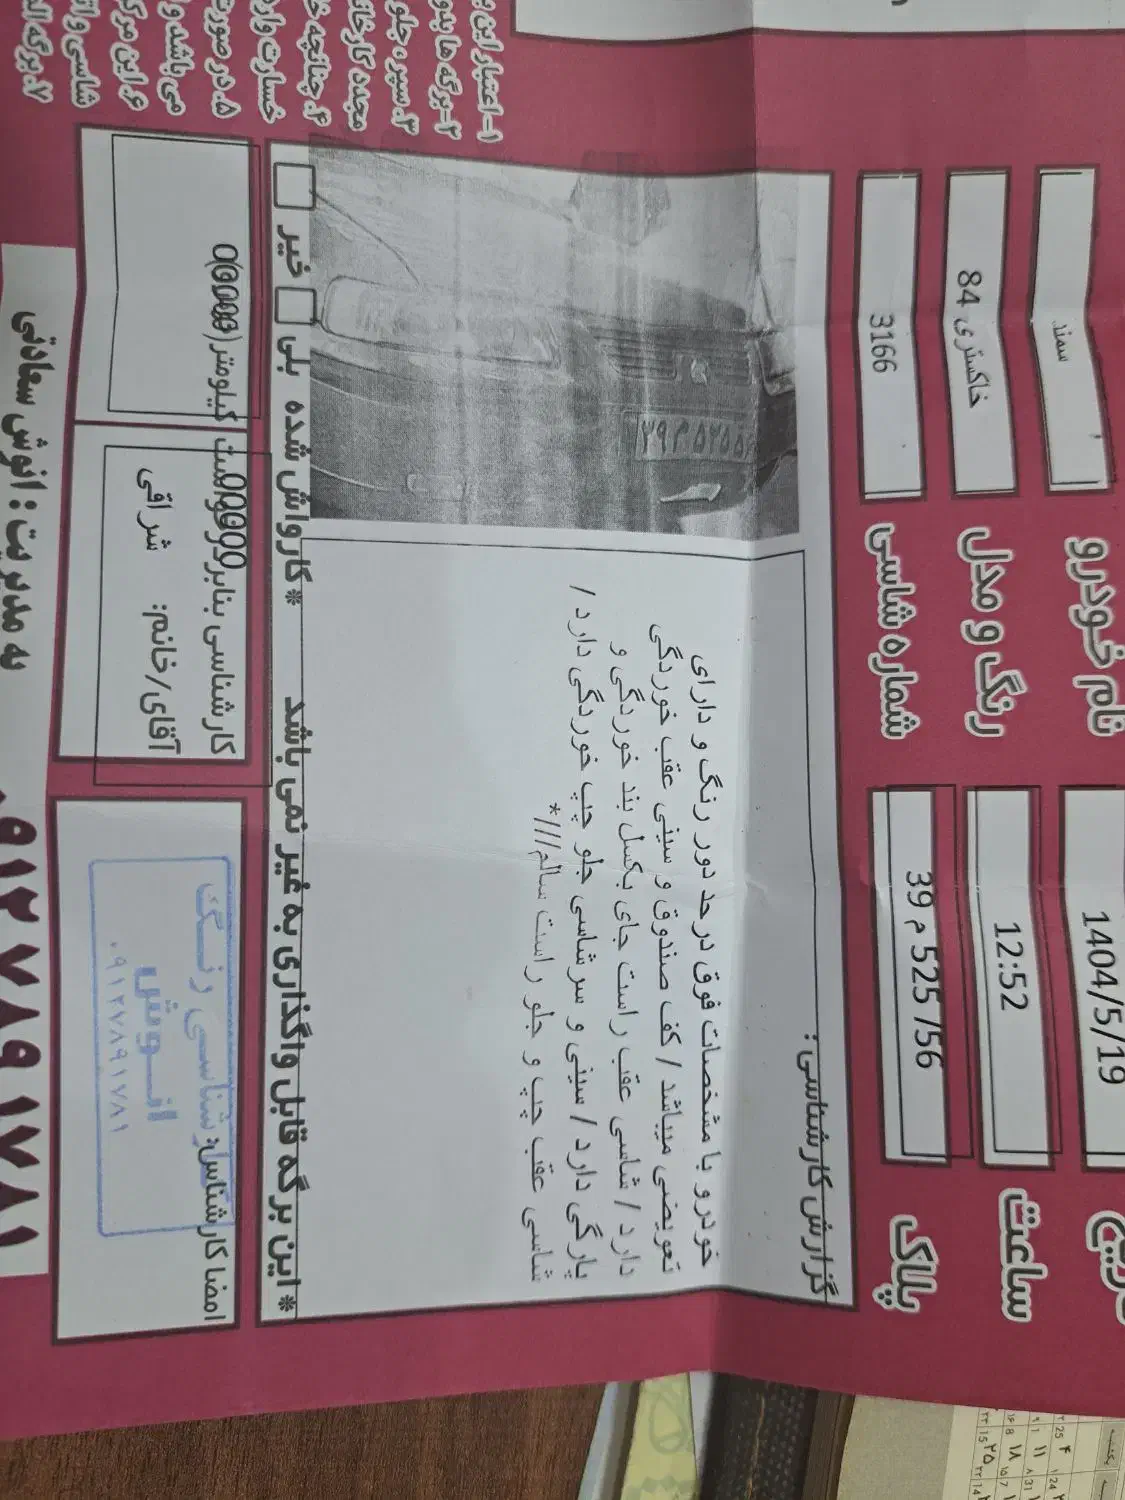 نام خودرو
سمند
تاریخ
1404/5/19
رنگ و مدل
خاکستری 84
ساعت
12:52
شماره شاسی
3166
پلاک
39 م 525 /56
گزارش کارشناسی:
خودرو با مشخصات فوق در حد دور رنگ و دارای
تعویضی میباشد / کف صندوق و سینی عقب خوردگی
دارد / شاسی عقب راست جای بکسل بند خوردگی و
پارگی دارد / سینی و سرشاسی جلو چپ خوردگی دارد /
شاسی عقب چپ و جلو راست سالم///*
*این برگه قابل واگذاری به غیر نمی باشد *کارواش شده بلی خیر
امضا کارشناس:
کارشناسی رنگ
انوش
۰۹۱۲۷۸۹۱۷۸۱
کارشناسی بنابر
کیلومتر
آقای/خانم: شراقی
به مدیریت : انوش سعادتی
۰۹۱۲۷۸۹۱۷۸۱
۱- اعتبار این
۲- برگه ها بدو
۳. سیر جلو
مجدد کارخا
۴. چنانچه
خسارت وار
۵. در صورت
می باشد و
۶. این مرک
شاسی و
۷. برگه